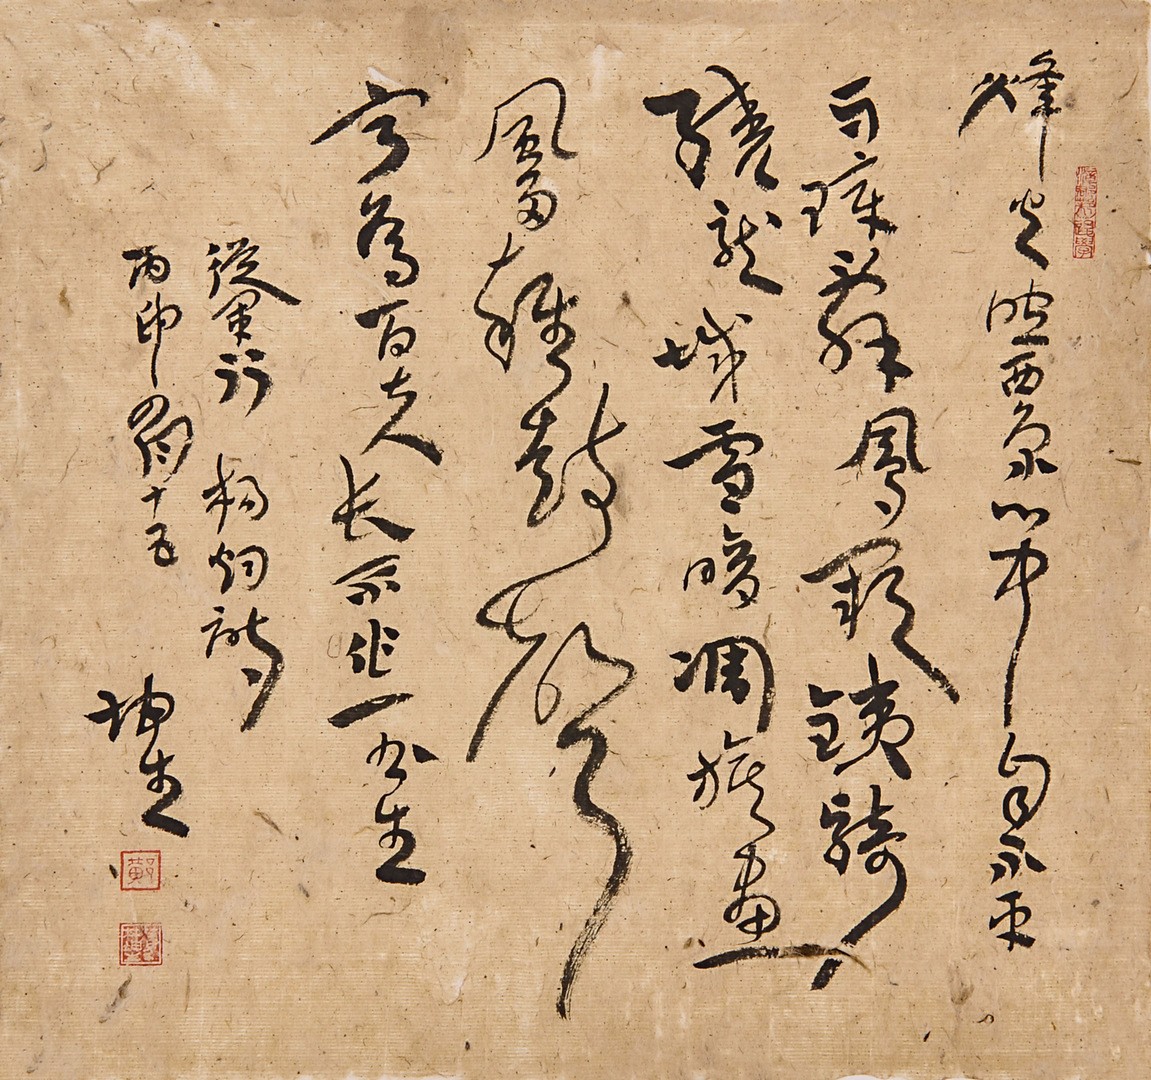 烽火照西京心中自不平
牙璋辭鳳闕鐵騎
繞龍城雪暗凋旗畫
風多雜鼓聲
寧為百夫長勝作一書生
從軍行 楊炯詩
丙申 十五
坤生